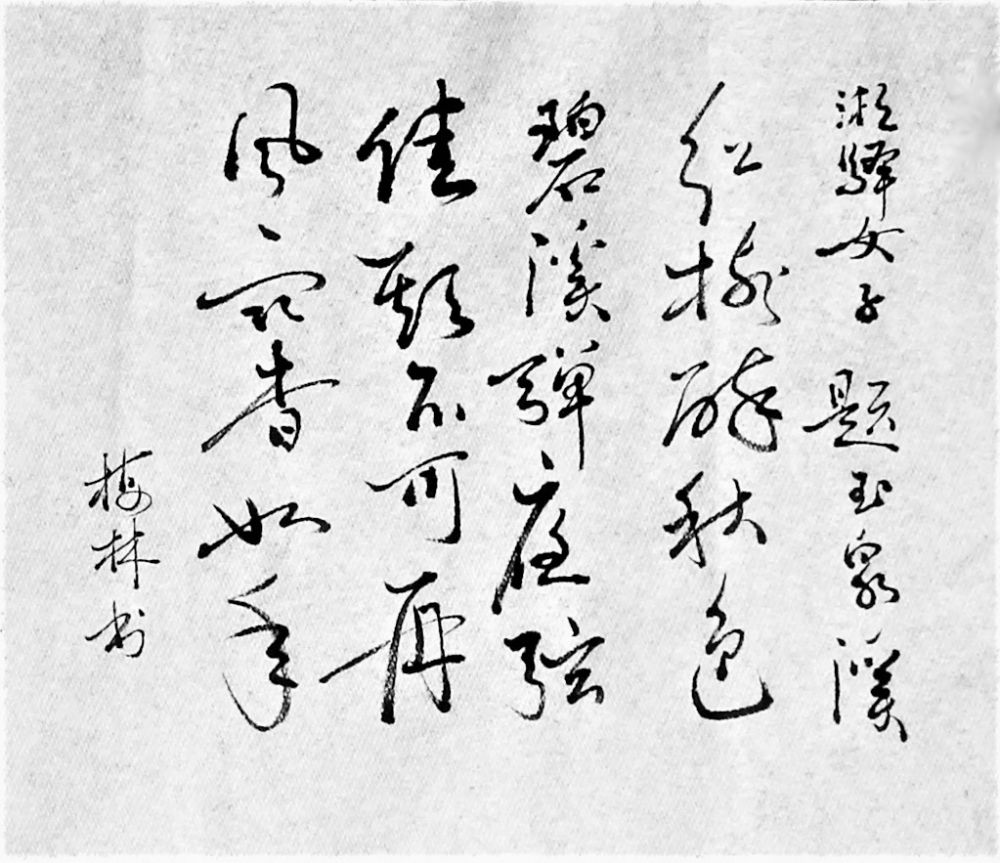 湘驛女子 题玉泉溪
红树醉秋色
碧溪弹夜弦
佳期不可再
风雨杳如年
梅林书